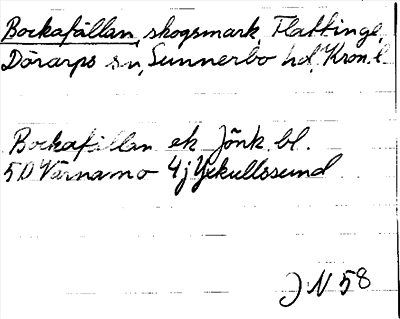 Bockafällan, skogsmark, Flattinge,
Dörarps sn, Sunnerbo hd, Kron. l.
Bockafällan ek Jönk. bl.
5D Värnamo 4j Yxkullssund
J N 58